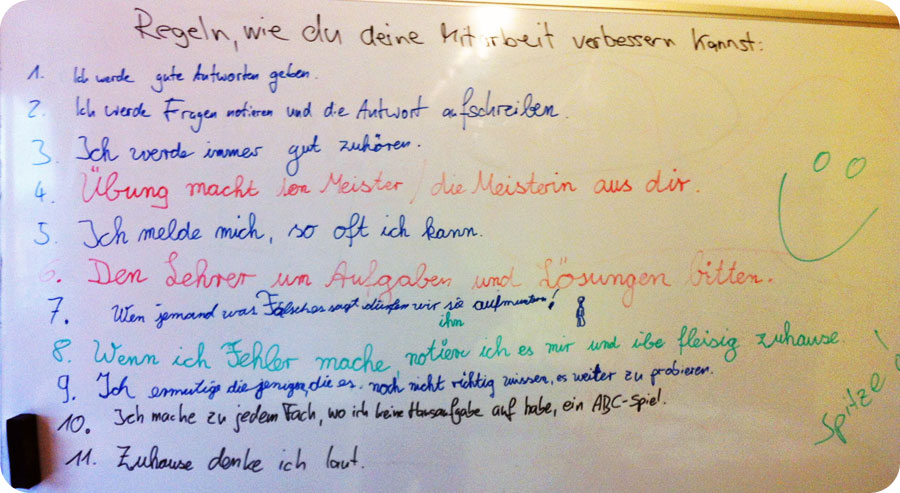 Regeln, wie du deine Mitarbeit verbessern kannst:
1. Ich werde gute Antworten geben.
2. Ich werde Fragen notieren und die Antwort aufschreiben.
3. Ich werde immer gut zuhören.
4. Übung macht den Meister / die Meisterin aus dir.
5. Ich melde mich, so oft ich kann.
6. Den Lehrer um Aufgaben und Lösungen bitten.
7. Wen jemand was Falsches sagt dürfen wir sie aufmuntern!
ihn
8. Wenn ich Fehler mache, notiere ich es mir und übe fleisig zuhause.
9. Ich ermutige die jenigen, die es noch nicht richtig wissen, es weiter zu probieren.
10. Ich mache zu jedem Fach, wo ich keine Hausaufgabe auf habe, ein ABC-Spiel.
11. Zuhause denke ich laut.
Spitze!